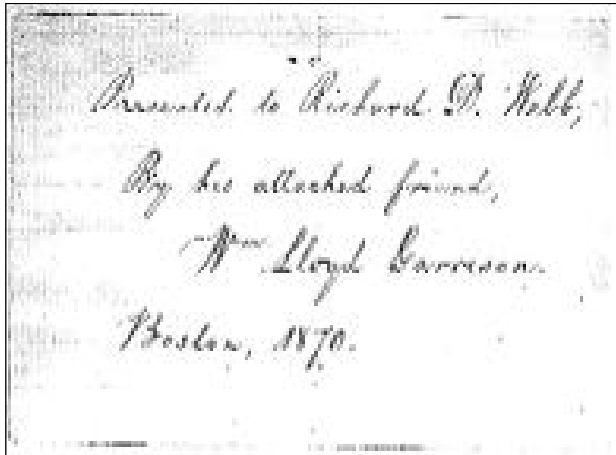 Presented to Richard D. Webb,
By his attached friend,
Wm Lloyd Garrison.
Boston, 1870.